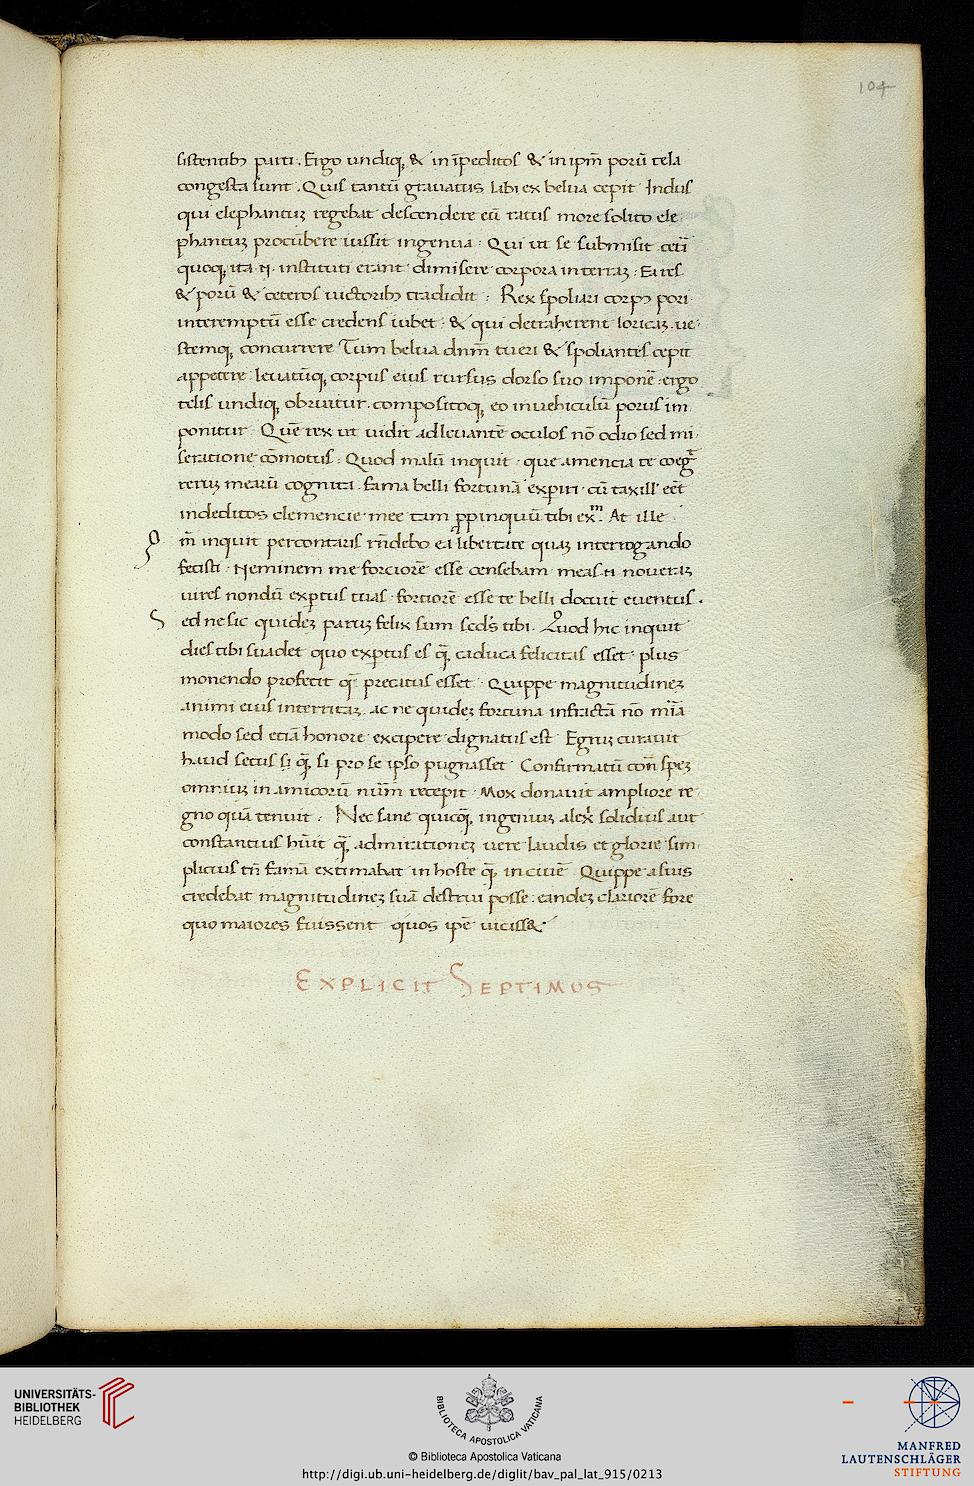 104
sistentibꝫ parci. Ergo undiq, & in īpeditos & in ipm̄ porū tela
congesta sunt. Quis tantū grauatus labi ex belua cepit Indus
qui elephantuꝫ regebat descendere eū ratus more solito ele
phantuꝫ procūbere iussit in genua: Qui ut se submisit cet̄i
quoq, ita n̄. instituti erant dimisere corpora in terraꝫ: Ea res
& porū & ceteros uictoribꝫ tradidit: Rex spoliari corpꝰ pori
interemptū esse credens iubet: & qui detraherent loricaꝫ ue
stemq, concurrere Tum belua dnm̄ tueri & spoliantes cepit
appetere leuatūq, corpus eius rursus dorso suo imponē: ergo
telis undiq, obruitur. compositoq, eo in uehiculū porus im
ponitur. Quē rex ut uidit adleuantē oculos nō odio sed mi
seratione cōmotus: Quod malū inquit que amencia te coeg̃
reruꝫ mearū cognita fama belli fortunā expiri cū taxill' eēt
in deditos clemencie mee tam ꝓpinquū tibi exᵐ. At ille
Qm̄ inquit percontaris rn̄debo ea libertate quaꝫ interrogando
fecisti. Neminem me forciorē esse censebam meas n̄ noueraꝫ
uires nondū exptus tuas fortiorē esse te belli docuit euentus.
Sed ne sic quideꝫ paruꝫ felix sum scd̄s tibi. Quod hic inquit
dies tibi suadet quo exptus es q̄ caduca felicitas esset. plus
monendo profecit q̄ precatus esset. Quippe magnitudineꝫ
animi eius interritaꝫ ac ne quideꝫ fortuna infractā nō mīā
modo sed eciā honore excipere dignatus est Egruꝫ curauit
haud secus si q̄ si pro se ipso pugnasset Confirmatū con̄ speꝫ
omniuꝫ in amicorū num̄ recepit. Mox donauit ampliore re
gno quā tenuit: Nec sane quicq̄ ingeniuꝫ alex̄ solidius aut
constantius hūit q̄ admirationeꝫ uere laudis et glorie sim
plicius tn̄ famā extimabat in hoste q̄ in ciuē Quippe a suis
credebat magnitudineꝫ suā destrui posse. eandeꝫ clariorē fore
quo maiores fuissent quos ipē uiciss&
EXPLICIT SEPTIMUS
UNIVERSITÄTS-
BIBLIOTHEK
HEIDELBERG
BIBLIOTECA APOSTOLICA VATICANA
© Biblioteca Apostolica Vaticana
http://digi.ub.uni-heidelberg.de/diglit/bav_pal_lat_915/0213
MANFRED
LAUTENSCHLÄGER
STIFTUNG